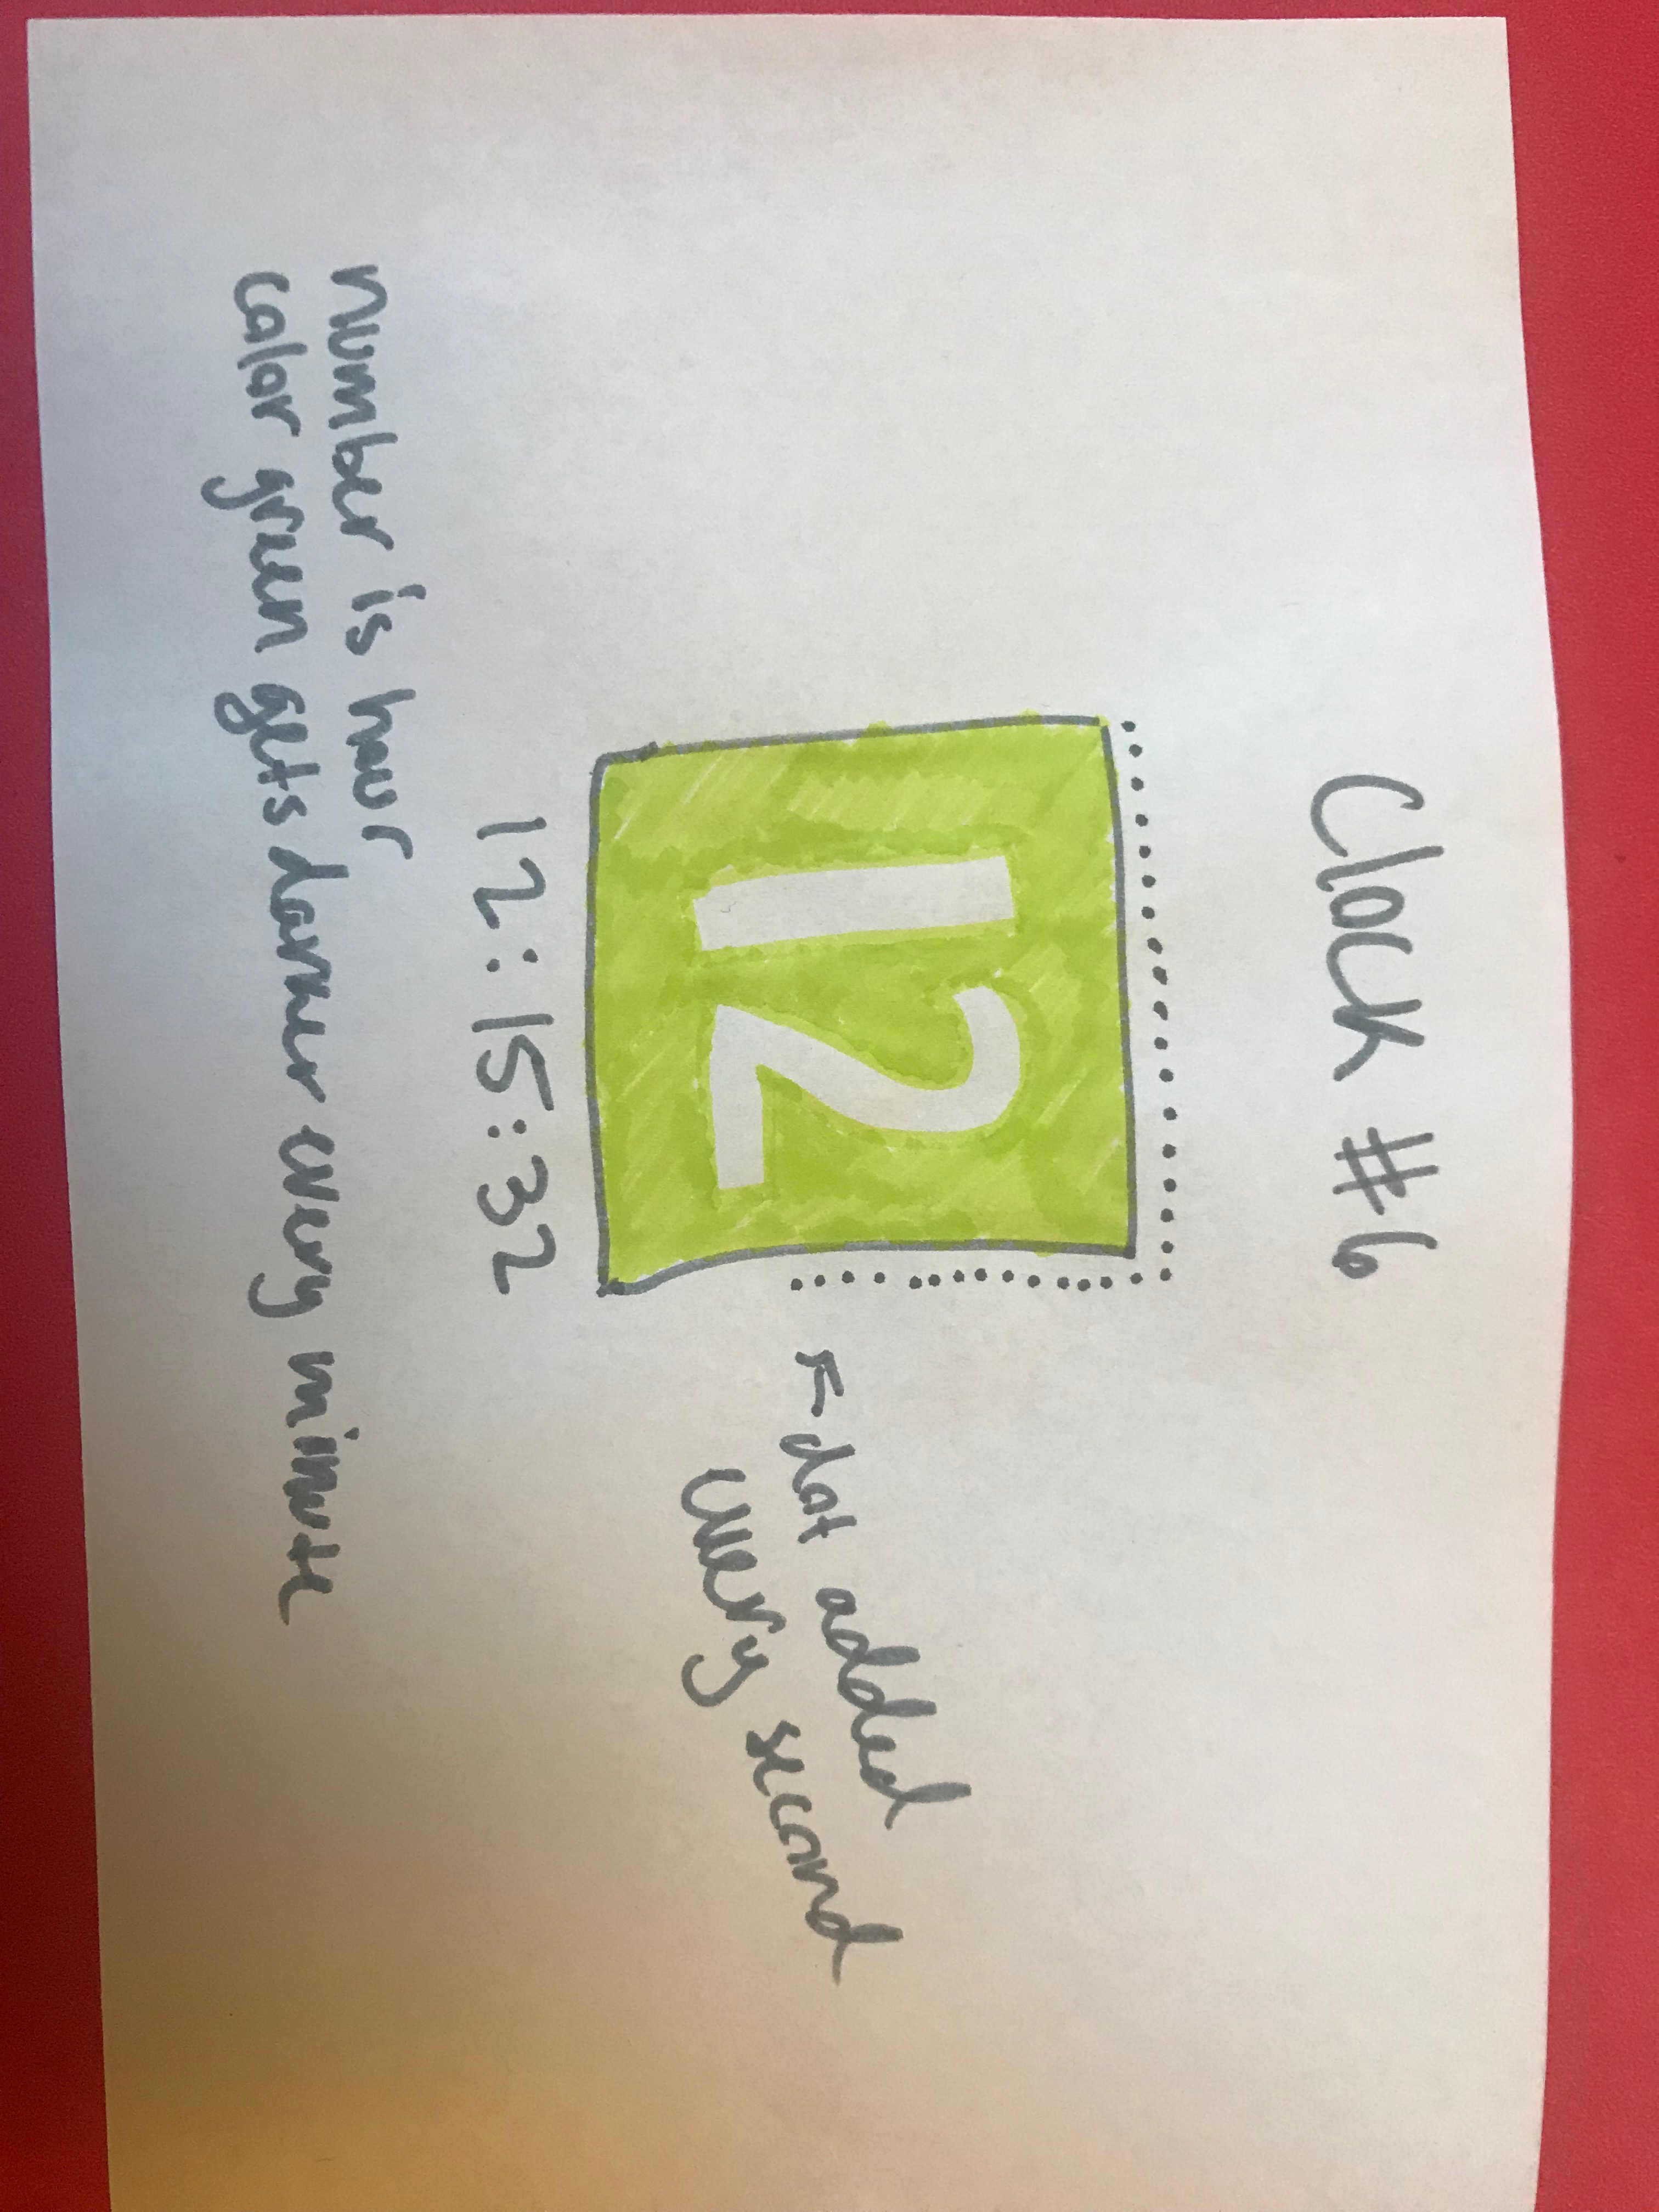 Clock #6
12
← dot added
every second
12:15:32
number is hour
color green gets darker every minute